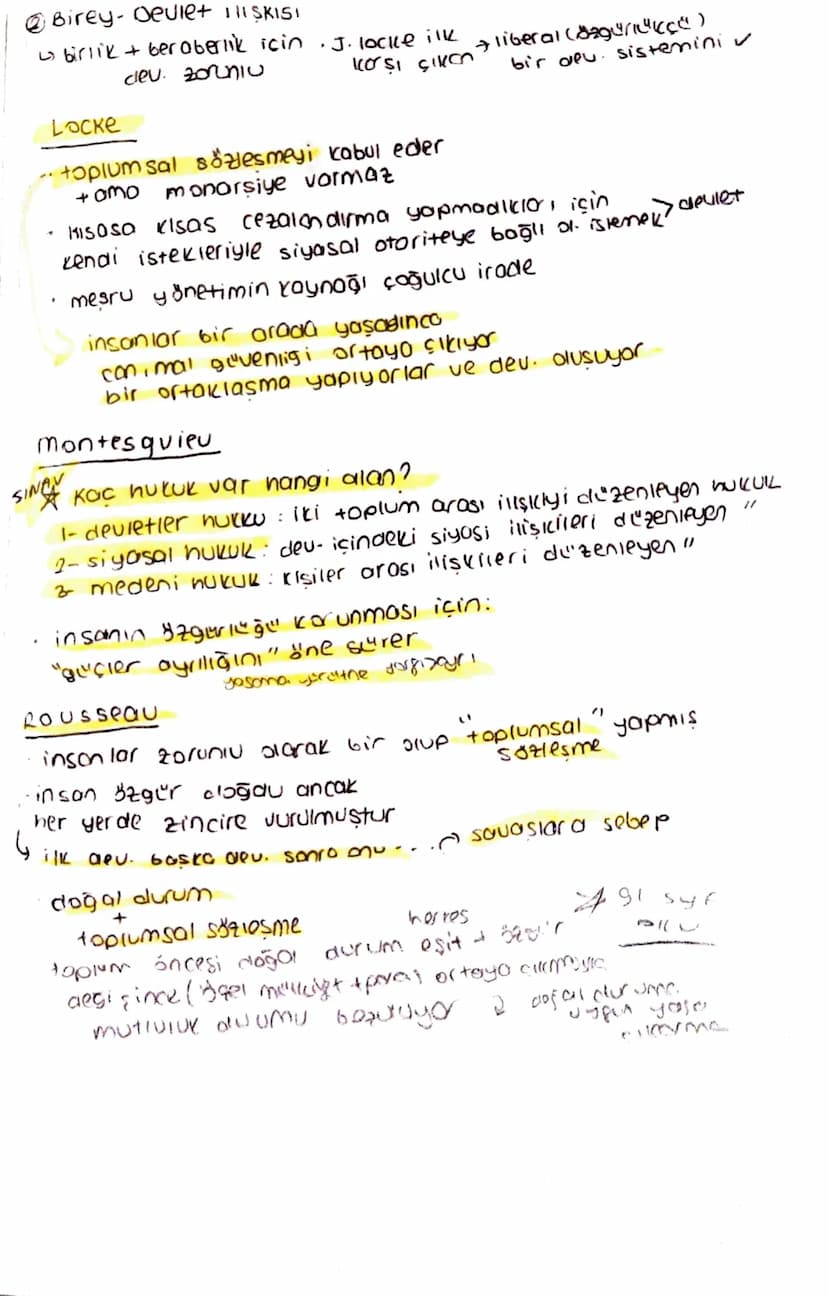 ② Birey-Devlet ilişkisi
↳ birlik + beraberlik için . J. locke ilk → liberal (özgürlükçü)
dev. zorunlu karşı çıkan bir dev. sistemini ✓
Locke
.. toplumsal sözleşmeyi kabul eder
+ ama monarşiye varmaz
. kısasa kısas cezalandırma yapmadıkları için
kendi istekleriyle siyasal otoriteye bağlı ol. istemek > devlet
. meşru yönetimin kaynağı çoğulcu irade
insanlar bir arada yaşadınca
can, mal güvenliği ortaya çıkıyor
bir ortaklaşma yapıyorlar ve dev. oluşuyor
Montesquieu
SINAV ☆ kaç hukuk var hangi alan?
1- devletler hukku : iki toplum arası ilişkiyi düzenleyen hukuk
2- siyasal hukuk : dev. içindeki siyasi ilişkileri düzenleyen "
3- medeni hukuk : kişiler arası ilişkileri düzenleyen "
. insanın özgürlüğü korunması için:
"güçler ayrılığını" öne sürer
yasama yürütme yargı ayrı
Rousseau
. insanlar zorunlu olarak bir olup "toplumsal" yapmış
sözleşme
. insan özgür doğdu ancak
her yerde zincire vurulmuştur
↳ ilk dev. başka dev. sonra onu . . . savaşlara sebep
doğal durum
+
toplumsal sözleşme
91 syf
toplum öncesi doğal durum eşit + özgür
(özel mülkiyet + para) ortaya
mutluluk durumu bozuluyor doğal duruma
uygun yasa